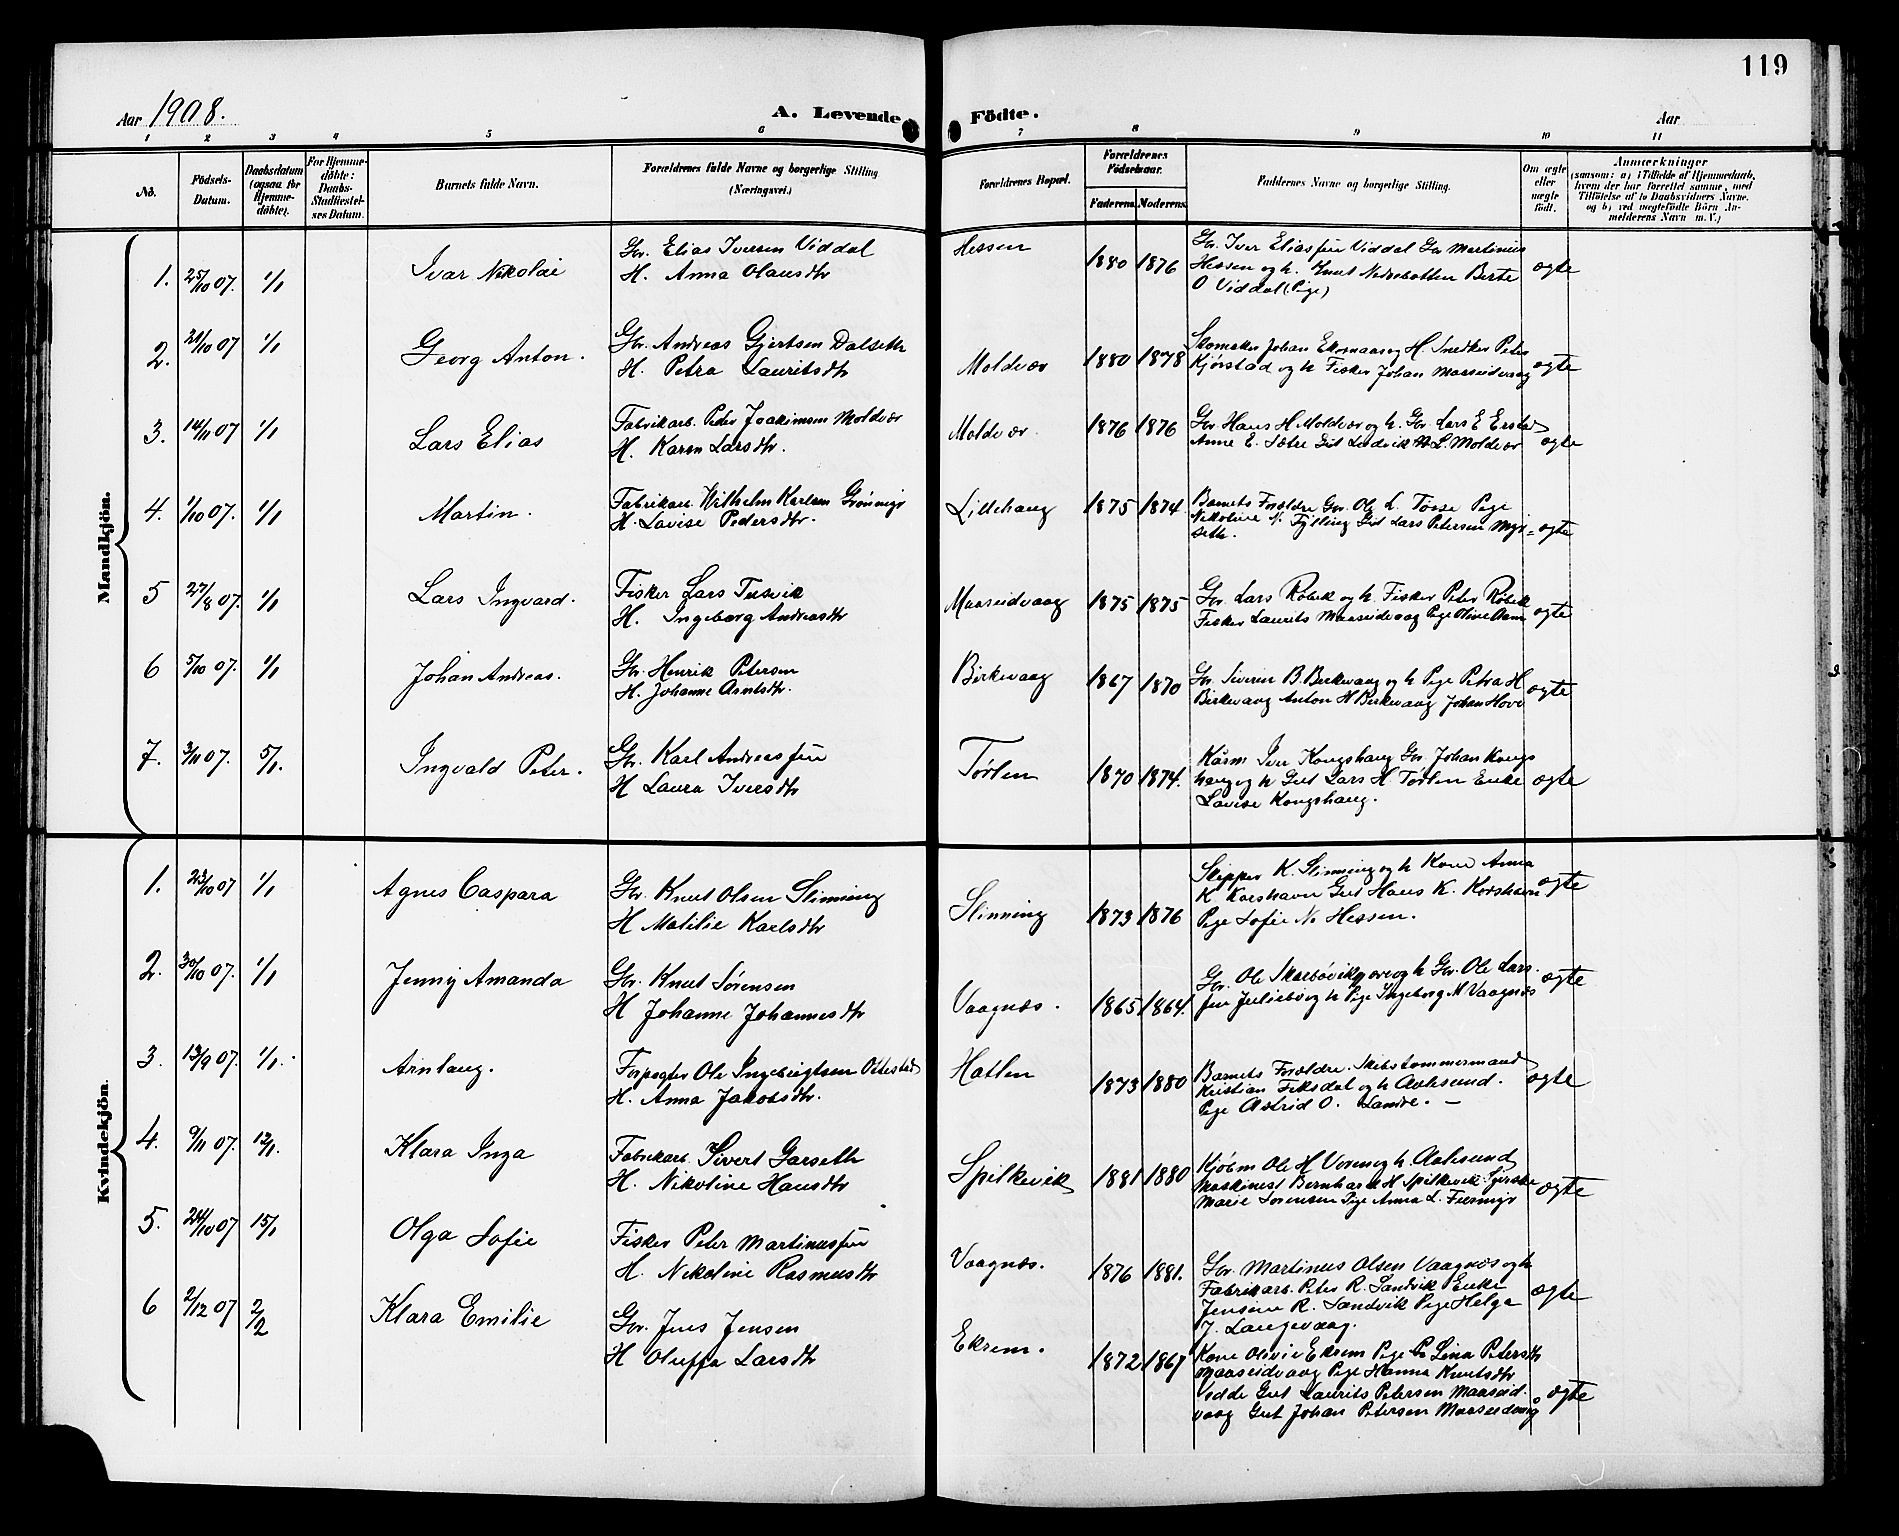 119
Aar 1908.
A. Levende Födte.
Aar
1 2 3 4 5 6 7 8 9 10 11
No.
Födsels-Datum.
Daabsdatum (ogsaa for Hjemme-döbte).
For Hjemme-döbte: Daabs-Stadfæstel-ses Datum.
Barnets fulde Navn.
Forældrenes fulde Navne og borgerlige Stilling (Næringsvei.)
Forældrenes Bopæl.
Forældrenes Födselsaar.
Faderens. Moderens.
Faddernes Navne og borgerlige Stilling.
Om ægte eller uægte födt.
Anmærkninger
(saasom: a) i Tilfælde af Hjemmedaab, hvem der har forrettet samme, med Tilföielse af to Daabsvidners Navne. og b) ved uægtefödte Börn An-melderens Navn m. V.)
Mandkjön.
1. 25/10 07. 1/1 Ivar Nikolai
Gbr. Elias Iversen Viddal
H. Anna Olausdtr
Hessen 1880 1876
Gbr. Iver Eliassen Viddal Gbr Martinius
Hessen og h. Knut Nedrebotten Berte
O Viddal (Pige)
ægte
2. 20/10 07 1/1 Georg Anton.
Gbr. Andreas Gjertsen Dalseth
H. Petra Lauritsdtr
Moldvær 1880 1878
Skomaker Johan Ekornaas og H. Snedker Peter
Kjørstad og h Fisker Johan Maaseidvaag
ægte
3. 14/11 07 1/1 Lars Elias
Fabrikarb. Peder Joakimsen Moldvær
H. Karen Larsdtr.
Moldvær. 1876 1876
Gbr Hans H Moldvær og h. Gbr Lars E Erstad
Anne E. Sætre Gut Ludvik L. Moldvær
ægte
4. 1/10 07. 1/1 Martin.
Fabrikarb Wilhelm Karlsen Grönmyr
H. Lovise Pedersdtr.
Lillehaug 1875 1874
Barnets Forældre Gbr. Ole L. Torse Pige
Nikoline N. Fylling Gut Lars Petersen Myr=
seth.
ægte
5 27/8 07. 1/1 Lars Ingvard.
Fisker Lars Tusvik
H. Ingeborg Andreasdtr
Maaseidvaag 1875 1875
Gbr. Lars Røbek og h. Fisker Peter Røbek
Fisker Laurits Maaseidvaag Pige Oline Aam
ægte
6 5/10 07. 1/1 Johan Andreas.
Gbr. Henrik Petersen
H. Johanne Arntsdtr.
Birkevaag 1867 1870
Gbr. Siveren B. Birkevaag og h Pige Petra H
Birkevaag Anton H Birkevaag Johan Hove
ægte
7. 3/11 07. 5/1. Ingvald Peter.
Gbr. Karl Andreassen
H Laura Iversdtr
Tørlen 1870 1874.
Kårm Iver Kongshaug Gbr. Johan Kongs
haug og h Gut Lars H Tørlen Enke
Lovise Kongshaug.
ægte
Kvindekjön.
1. 23/10 07 1/1 Agnes Caspara
Gbr. Knut Olsen Slinning
H Matilie Karlsdtr
Slinning 1873 1876
Skipper K. Slinning og h Kone Anna
K Korshavn Gut Hans K. Korshavn
Pige Sofie N. Hessen.
ægte
2. 30/10 07. 1/1 Jenny Amanda
Gbr. Knut Sørensen
H Johanne Johannesdtr
Vaagnæs. 1865 1864.
Gbr. Ole Skarbøvikgove og h Gbr. Ole Lars-
sen Juliebø og h Pige Ingeborg M Vaagnæs
ægte
3. 13/9 07. 1/1. Arnlaug.
Forpagter Ole Ingebrigtsen Ottestad
H. Anna Jakobsdtr.
Hatlen 1873 1880
Barnets Forældre. Skibstømmermand
Kristian Fiksdal og h Aalesund.
Pige Astrid O. Lande.
ægte
4. 9/11 07. 12/1. Klara Inga
Fabrikarb. Sivert Garseth
H. Nikoline Hansdtr
Spilkevik 1881 1880
Kjöbm Ole H Voren og h. Aalesund
Maskinest Bernhard H Spilkevik
Marie Sørensen Pige Anna L. Flesmyr
ægte
5. 24/10 07 15/1 Olga Sofie
Fisker Peter Martinussen
H. Nikoline Rasmusdtr
Vaagnæs. 1876 1881.
Gbr. Martinus Olsen Vaagnæs og h
Fabrikarb. Peter R. Sandvik Enke
Jensine R. Sandvik Pige Helga
J. Langevaag.
ægte
6 2/12 07 2/2 Klara Emilie
Gbr. Jens Jensen
H Oluffa Larsdtr
Ekrem. 1872 1867
Kone Olivie Ekrem Pige Lina Petersdtr
Maaseidvaag Pige Hanna Knutsdtr
Vedde Gut Laurits Petersen Maaseid
vaag Gut Johan Petersen Maaseidvåg
ægte